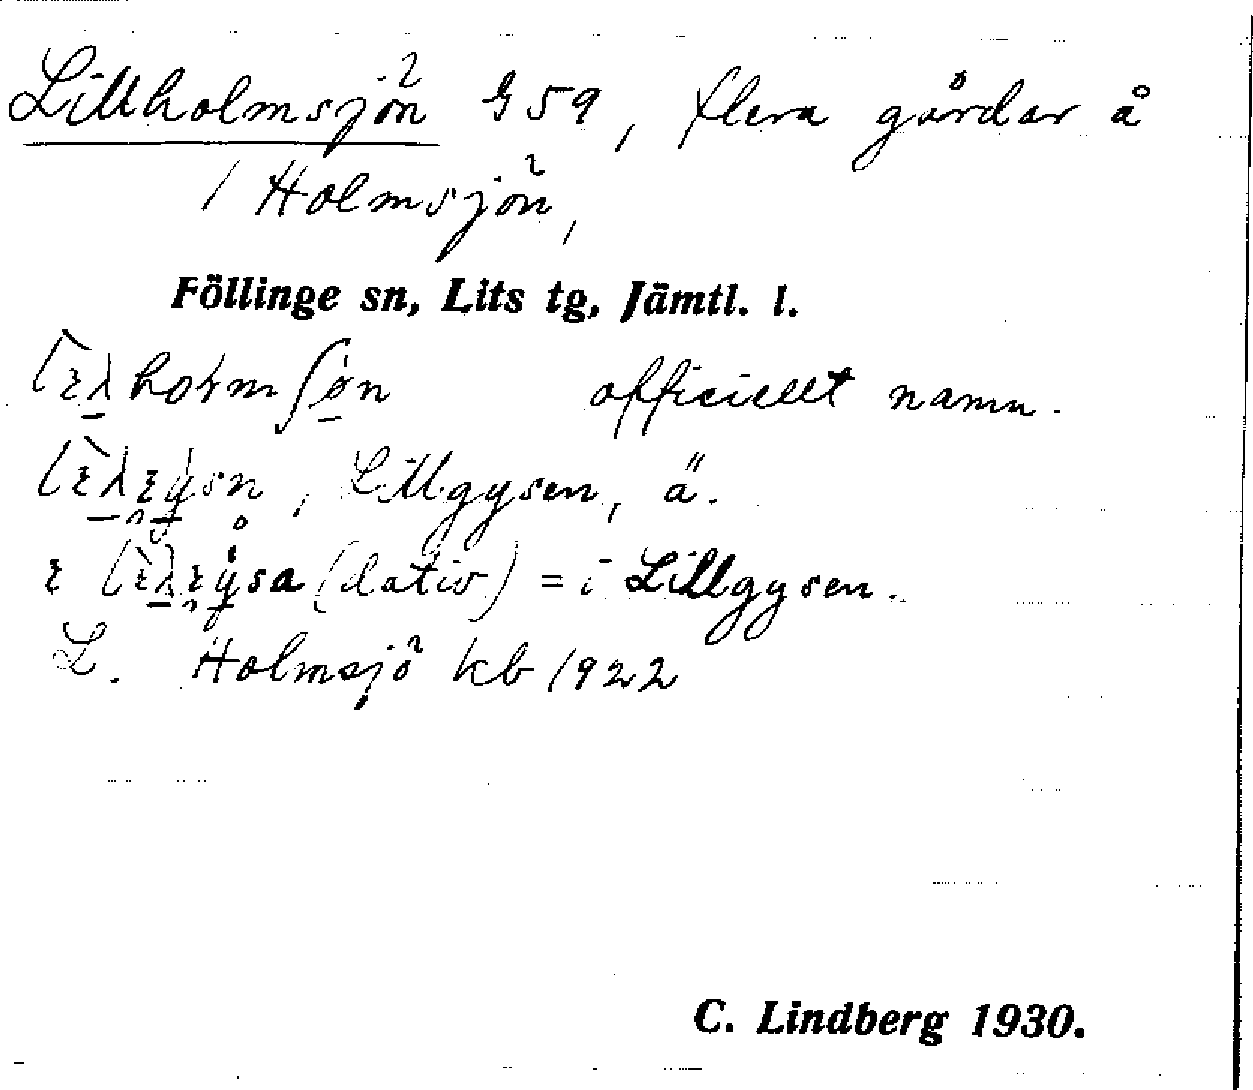 Lillholmsjön G 59, flera gårdar å
1 Holmsjön,
Föllinge sn, Lits tg, Jämtl. l.
officiellt namn.
, Lillgysen, ä.
(dativ) = i Lillgysen.
L. Holmsjö kb 1922
C. Lindberg 1930.